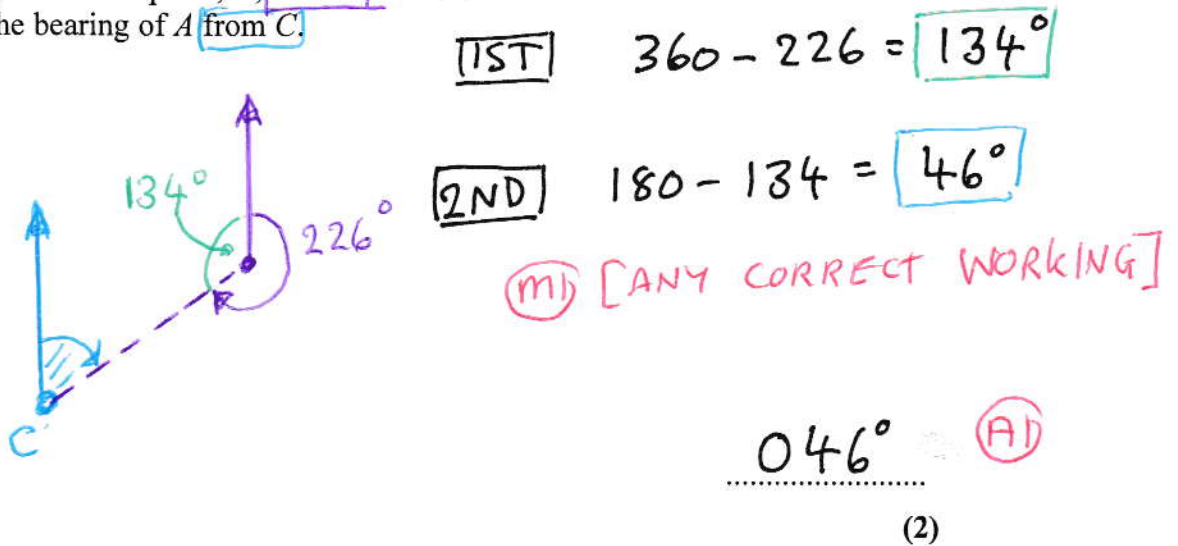 he bearing of A from C.
1ST 360 - 226 = 134°
134°
226°
2ND 180 - 134 = 46°
M1 [ANY CORRECT WORKING]
C
046° A1
(2)